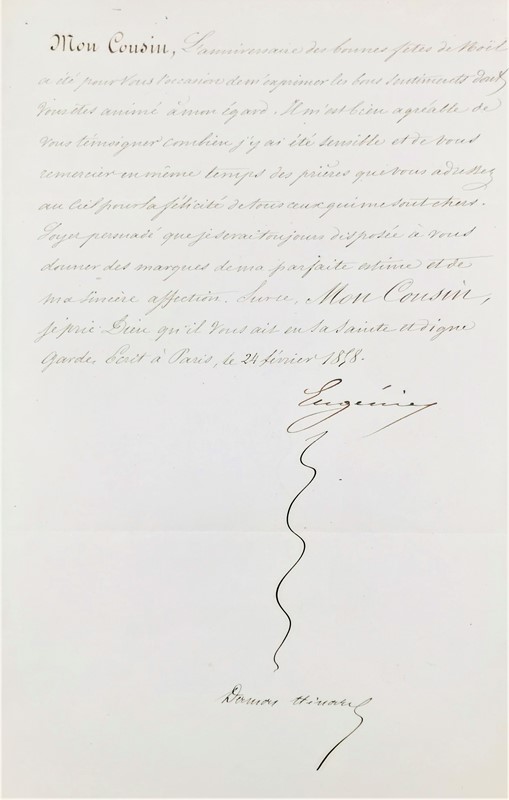 Mon Cousin, L'anniversaire des bonnes fêtes de Noël
a été pour Vous l'occasion de m'exprimer les bons sentiments dont
Vous êtes animé à mon égard. Il m'est bien agréable de
vous témoigner combien j'y ai été sensible et de vous
remercier en même temps des prières que vous adressez
au Ciel pour la félicité de tous ceux qui me sont chers.
Soyez persuadé que je serai toujours disposée à vous
donner des marques de ma parfaite estime et de
ma sincère affection. Sur ce, Mon Cousin,
je prie Dieu qu'il Vous ait en sa sainte et digne
Garde. Ecrit à Paris, le 24 février 1858.
Eugénie
Damas Hinard